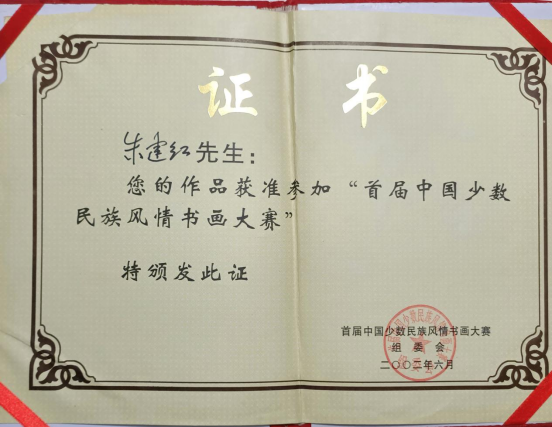 证书
朱建红先生：
您的作品获准参加“首届中国少数
民族风情书画大赛”
特颁发此证
首届中国少数民族风情书画大赛
组委会
二〇〇二年六月